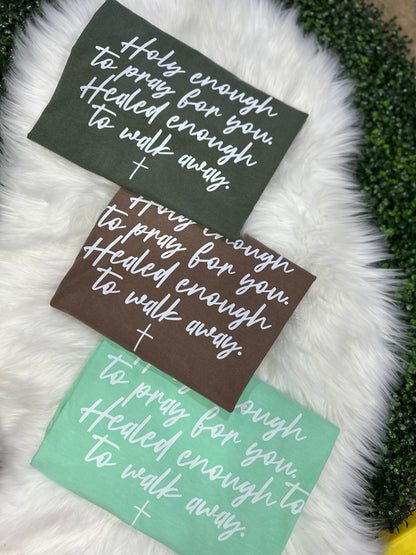 Holy enough
to pray for you.
Healed enough
to walk away.
Holy enough
to pray for you.
Healed enough
to walk away.
enough
to pray for you.
Healed enough to
to walk away.